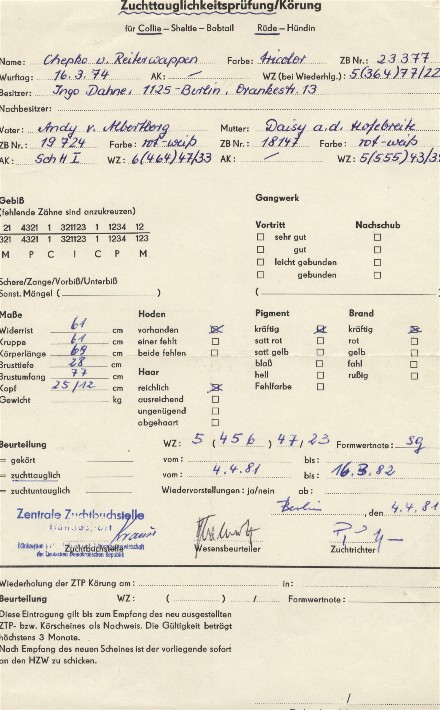 Zuchttauglichkeitsprüfung/Körung
für Collie – Sheltie – Bobtail Rüde – Hündin
Name: Chepko v. Reiterwappen Farbe: tricolor ZB Nr.: 23 377
Wurftag: 16.3.74 AK: – WZ (bei Wiederhlg.): 5(364)77/22
Besitzer: Ingo Dahne, 1125-Berlin, Orankestr. 13
Nachbesitzer:
Vater: Andy v. Albertberg Mutter: Daisy a.d. Hofebreite
ZB Nr.: 19 724 Farbe: rot-weiß ZB Nr.: 18147 Farbe: rot-weiß
AK: SchH I WZ: 6(464)47/33 AK: – WZ: 5(555)43/3
Gebiß
(fehlende Zähne sind anzukreuzen)
21 4321 1 321123 1 1234 12
321 4321 1 321123 1 1234 123
M P C I C P M
Schere/Zange/Vorbiß/Unterbiß
Sonst. Mängel ( )
Gangwerk
Vortritt Nachschub
sehr gut
gut
leicht gebunden
gebunden
( 
Maße
Widerrist 61 cm
Kruppe 61 cm
Körperlänge 69 cm
Brusttiefe 28 cm
Brustumfang 77 cm
Kopf 25/12 cm
Gewicht kg
Hoden
vorhanden
einer fehlt
beide fehlen
Haar
reichlich
ausreichend
ungenügend
abgehaart
Pigment
kräftig
satt rot
satt gelb
blaß
hell
Fehlfarbe
Brand
kräftig
rot
gelb
fahl
rußig
Beurteilung WZ: 5 (456) 47/23 Formwertnote: sg
= gekört vom: bis:
= zuchttauglich vom: 4.4.81 bis: 16.3.82
= zuchtuntauglich Wiedervorstellungen: ja/nein ab:
Berlin, den 4.4.81
Zentrale Zuchtbuchstelle
Hundesport
der Deutschen Demokratischen Republik
Zuchtbuchstelle Wesensbeurteiler Zuchtrichter
Wiederholung der ZTP Körung am: in:
Beurteilung WZ: ( ) / Formwertnote:
Diese Eintragung gilt bis zum Empfang des neu ausgestellten
ZTP- bzw. Körscheines als Nachweis. Die Gültigkeit beträgt
höchstens 3 Monate.
Nach Empfang des neuen Scheines ist der vorliegende sofort
an den HZW zu schicken.
/